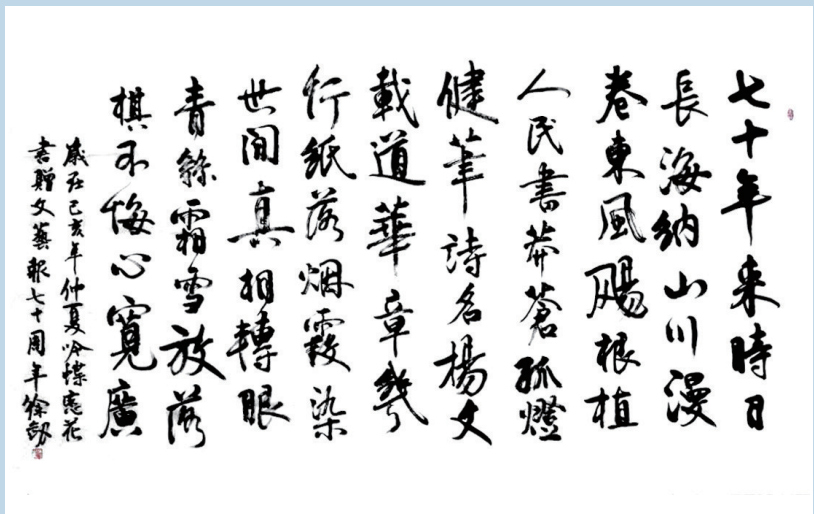 七十年来時日
長海納山川漫
卷東風賜根植
人民書莽蒼孤燈
健筆詩名楊文
載道華章幾
行紙落烟霞染
世間真相轉眼
青絲霜雪放落
棋不悔心寬廣
歲在己亥年仲夏吟蝶恋花
書贈文藝報七十周年徐劍